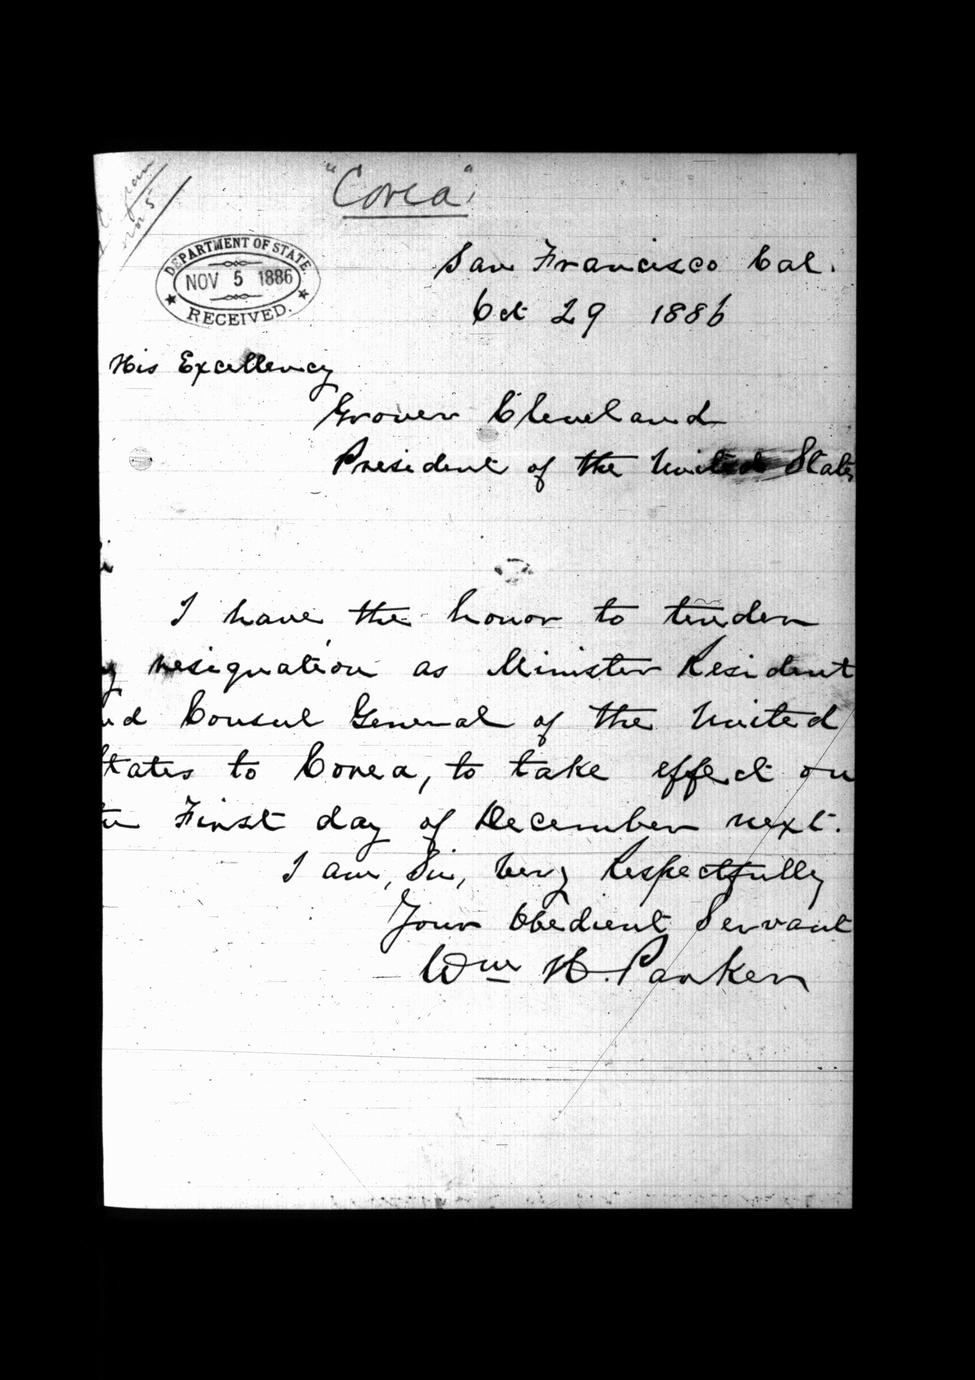 "Corea"
Nov 5
DEPARTMENT OF STATE.
NOV 5 1886
RECEIVED.
San Francisco Cal.
Oct 29 1886
His Excellency
Grover Cleveland
President of the United States
I have the honor to tender
resignation as Minister Resident
nd Consul General of the United
tates to Corea, to take effect on
First day of December next.
I am, Sir, Very Respectfully
Your Obedient Servant
Wm H. Parker